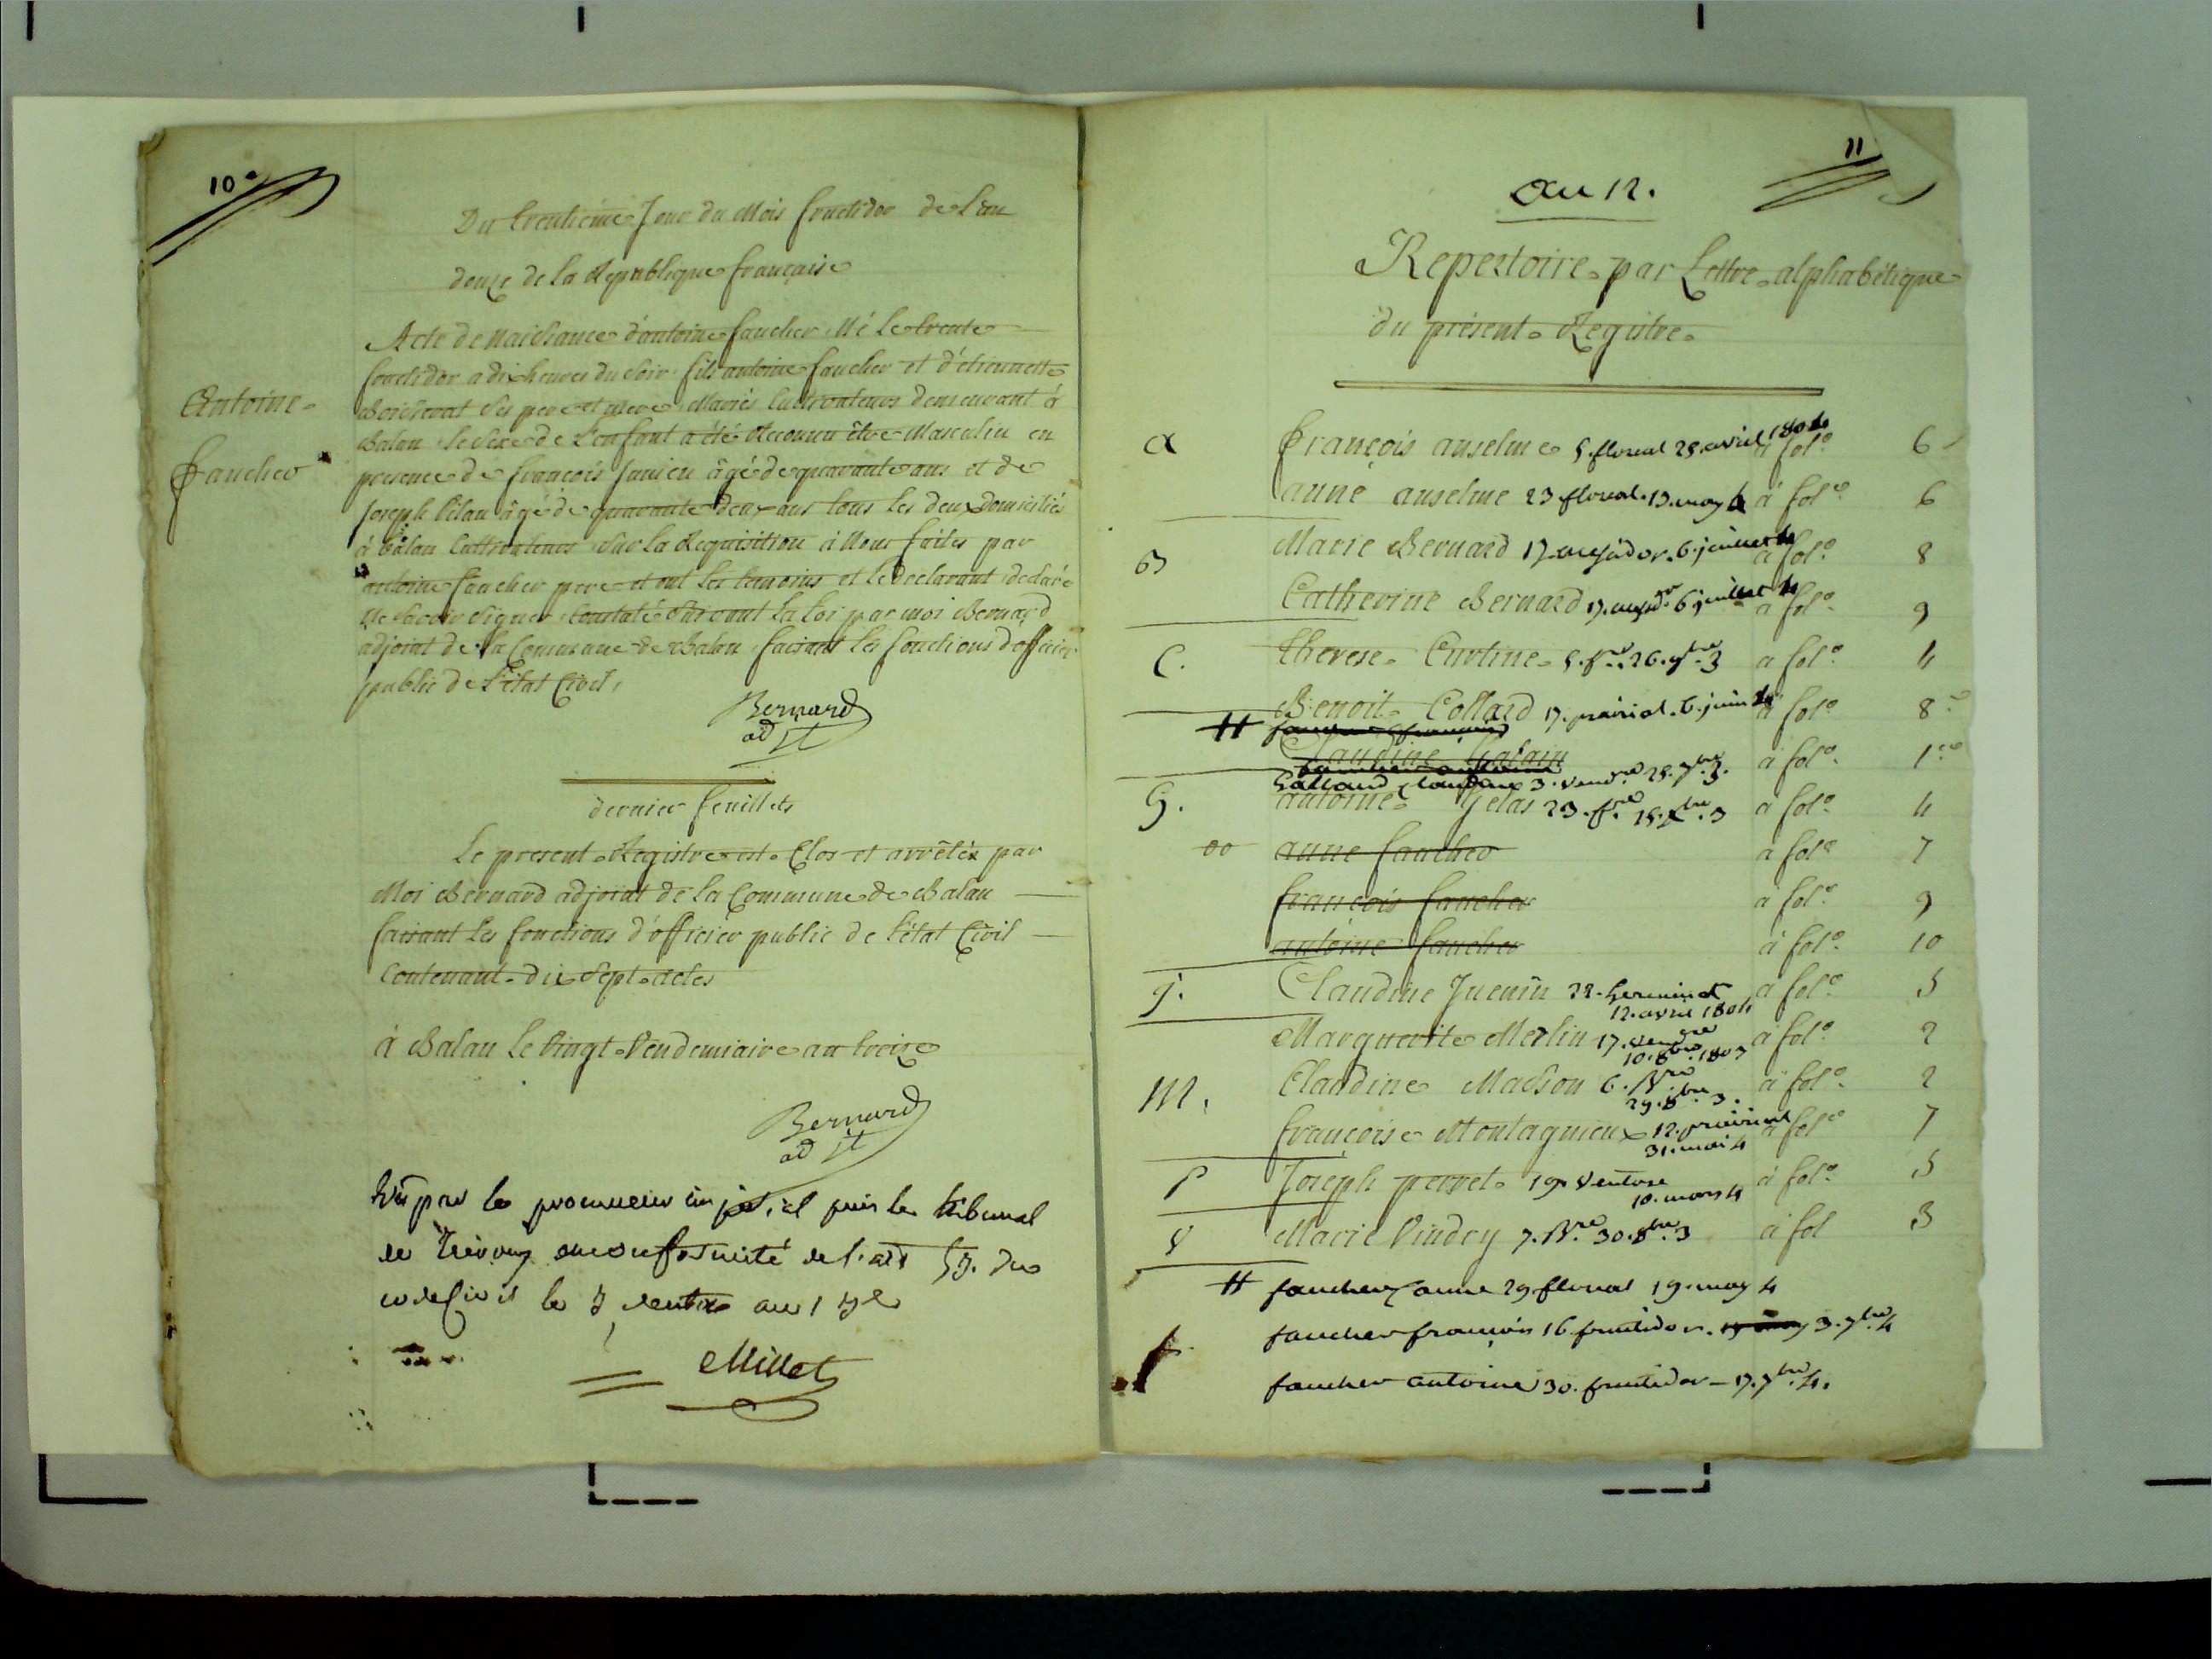 10e
Du trentieme Jour du Mois fructidor de L'an
douze de la Republique française
Antoine
faucher
Acte de Naissance d'antoine faucher Né le trente
fructidor a dix heures du Soir fils antoine faucher et d'étiennette
Boicherat Ses pere et mere Mariés Cultivateurs demeurant à
Balan le Sexe de L'enfant a été Reconnu être Masculin en
presence de françois Junien âgé de quarante ans et de
Joseph Pélau âgé de quarante deux ans tous les deux domiciliés
à Balan Cultivateurs Sur la Requisition à Nous faites par
antoine faucher pere et ont les temoins et le declarant declaré
Ne Savoir Signer Constaté Suivant la Loi par moi Bernard
adjoint de la Commune de Balan faisant les fonctions d'officier
public de l'état Civil,
Bernard
adjt
dernier feuillets
Le present Registre est Clos et arrêtéx par
Moi Bernard adjoint de la Commune de Balan
faisant les fonctions d'officier public de l'état Civil
Contenant dix Sept actes
à Balan le Vingt Vendemiaire an treize
Bernard
adjt
Vû par le procureur impérial près le tribunal
de Trévoux en conformité de l'art 53. du
code Civil le 3 ventose an 13e
Millet
11
an 12.
Repertoire par Lettre alphabétique
du présent Registre
a François anselme 5. floreal 25. avril 1804 à fol.o 6
anne anselme 23 floreal. 13. may 4 à fol.o 6
B Marie Bernard 17. messidor. 6. juillet 4 à fol.o 8
Catherine Bernard 17. messidor 6 juillet 4 à fol.o 9
C. therese Curtine 5. f.re 26. 9bre 3 a fol.o 4
Benoit Collard 17. prairial. 6. juin 4 à fol.o 8
# faucher françois
Claudine Galain à fol.o 1er
faucher antoine
Galland Claudine 3. vend.re 25. 7bre 3.
G. antoine Gelas 23. f.re 15. Xbre 3 a fol.o 4
oo anne faucher a fol.o 7
françois faucher a fol.o 9
antoine faucher à fol.o 10
J. Claudine Juenin 22. Germinal à fol.o 5
12. avril 1804
Marguerite Merlin 17. vend.re à fol.o 2
10. 8bre 1803
M. Claudine Masson 6. B.re à fol.o 2
29. 8bre 3.
françoise Montagnieux 12. prairial à fol.o 7
31. mai 4
P Joseph pervet 19 Ventose à fol.o 5
10. mars 4
V Marie Vindry 7. B.re 30. 8bre 3 à fol 3
# faucher anne 29 floreal 19. may 4
faucher françois 16. fructidor. 19 may 3. 7bre 4
faucher antoine 30. fructidor – 17. 7bre 4.